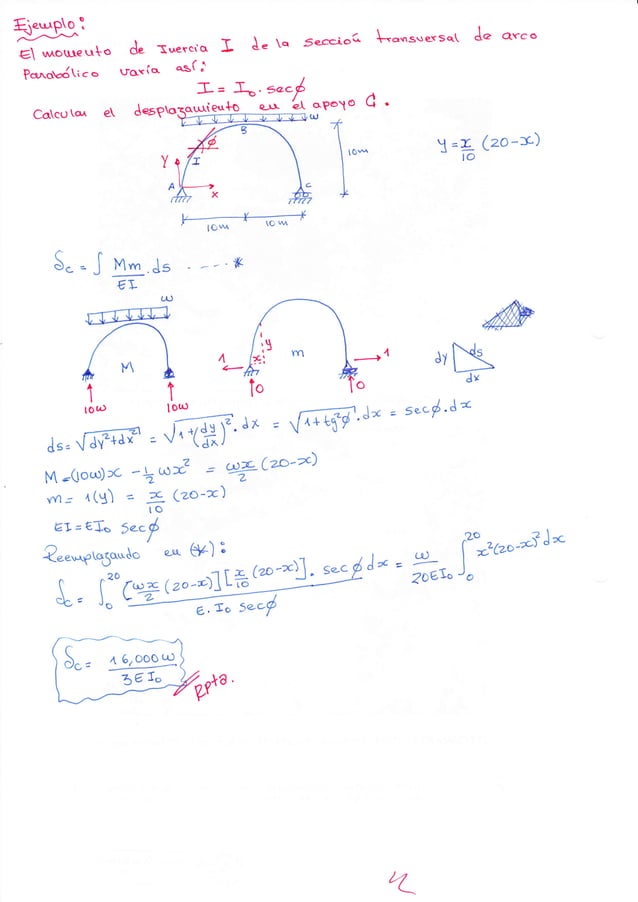 Ejemplo:
El momento de Inercia I de la sección transversal de arco
Parabólico varía así:
I = I₀. secϕ
Calcular el desplazamiento en el apoyo C.
w
B
ϕ
I
Y
A
x
C
10m
10m
10m
y = x/10 (20-x)
δc = ∫ Mm/EI .ds ----*
w
M
10w
10w
1
x
y
m
1
0
0
dy
ds
dx
ds = √(dy²+dx²) = √(1+(dy/dx)²).dx = √(1+tg²ϕ).dx = secϕ.dx
M = (10w)x - 1/2 wx² = wx/2 (20-x)
m = 1(y) = x/10 (20-x)
EI = EI₀ secϕ
Reemplazando en (*):
δc = ∫₀²⁰ [wx/2 (20-x)][x/10 (20-x)]. secϕdx / E.I₀ secϕ = w/20EI₀ ∫₀²⁰ x²(20-x)²dx
δc = 16,000w/3EI₀
Rpta.